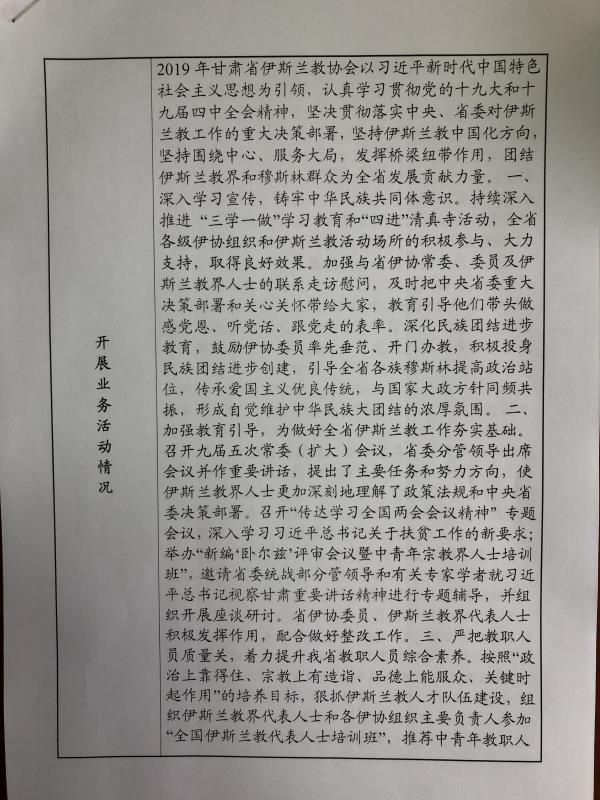 开展业务活动情况
2019年甘肃省伊斯兰教协会以习近平新时代中国特色
社会主义思想为引领，认真学习贯彻党的十九大和十
九届四中全会精神，坚决贯彻落实中央、省委对伊斯
兰教工作的重大决策部署，坚持伊斯兰教中国化方向，
坚持围绕中心、服务大局，发挥桥梁纽带作用，团结
伊斯兰教界和穆斯林群众为全省发展贡献力量。一、
深入学习宣传，铸牢中华民族共同体意识。持续深入
推进“三学一做”学习教育和“四进”清真寺活动，全省
各级伊协组织和伊斯兰教活动场所的积极参与、大力
支持，取得良好效果。加强与省伊协常委、委员及伊
斯兰教界人士的联系走访慰问，及时把中央省委重大
决策部署和关心关怀带给大家，教育引导他们带头做
感党恩、听党话、跟党走的表率。深化民族团结进步
教育，鼓励伊协委员率先垂范、开门办教，积极投身
民族团结进步创建，引导全省各族穆斯林提高政治站
位，传承爱国主义优良传统，与国家大政方针同频共
振，形成自觉维护中华民族大团结的浓厚氛围。二、
加强教育引导，为做好全省伊斯兰教工作夯实基础。
召开九届五次常委（扩大）会议，省委分管领导出席
会议并作重要讲话，提出了主要任务和努力方向，使
伊斯兰教界人士更加深刻地理解了政策法规和中央省
委决策部署。召开“传达学习全国两会会议精神”专题
会议，深入学习习近平总书记关于扶贫工作的新要求；
举办“新编‘卧尔兹’评审会议暨中青年宗教界人士培训
班”，邀请省委统战部分管领导和有关专家学者就习近
平总书记视察甘肃重要讲话精神进行专题辅导，并组
织开展座谈研讨。省伊协委员、伊斯兰教界代表人士
积极发挥作用，配合做好整改工作。三、严把教职人
员质量关，着力提升我省教职人员综合素养。按照“政
治上靠得住、宗教上有造诣、品德上能服众、关键时
起作用”的培养目标，狠抓伊斯兰教人才队伍建设，组
织伊斯兰教界代表人士和各伊协组织主要负责人参加
“全国伊斯兰教代表人士培训班”，推荐中青年教职人